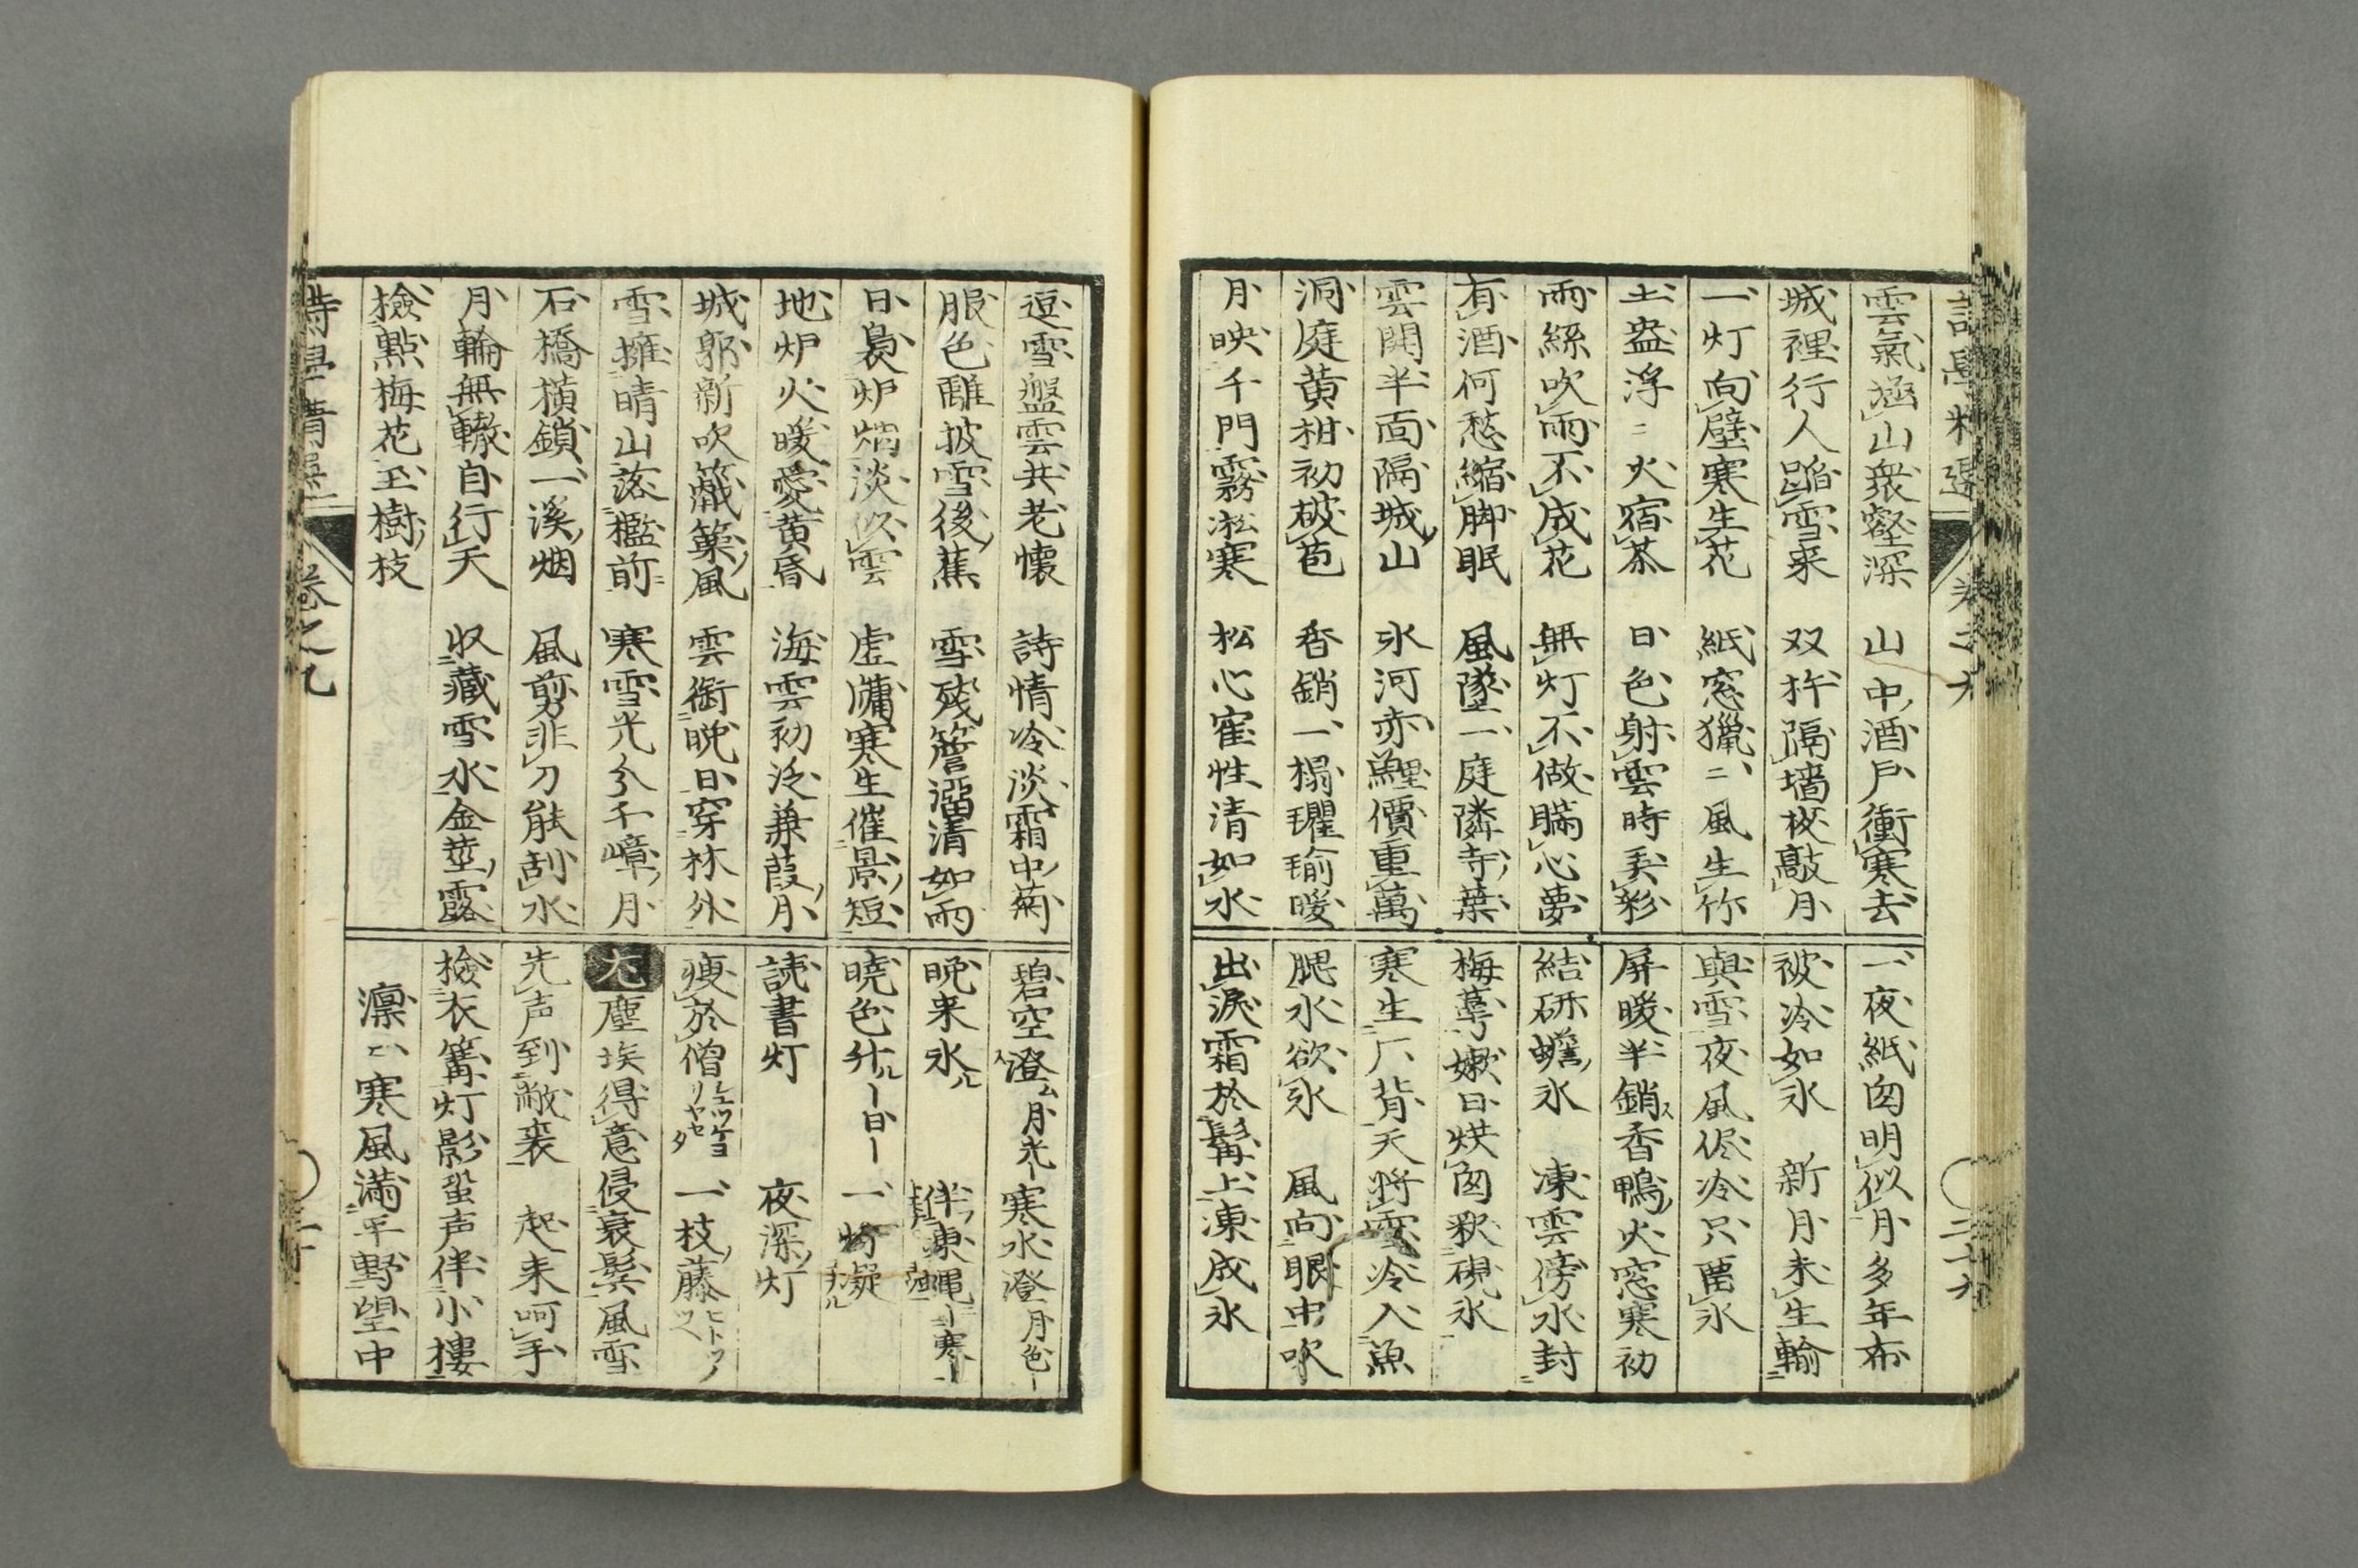 雲氣涵山衆壑深　山中酒戶衝寒去
城裡行人蹈雪来　双杵隔墻枚敲月
一灯向壁寒生花　紙窓獵〻風生竹
土盎浮〻火宿茶　日色射雲時
雨絲吹雨不成花　無灯不做瞞心夢
有酒何愁縮脚眠　風墜一庭隣寺葉
雲開半面隔城山　氷河赤鯉價重萬
洞庭黄柑初破苞　香銷一榻氍毹暖
月映千門霧凇寒　松心寉性清如水
一夜紙囪明似月多年布
被冷如氷　新月未生輪
與雪夜風侭冷只畱氷
屏暖半銷香鴨火窓寒初
結研蟾氷　凍雲傍水封
梅萼嫩日烘囪釈硯氷
寒生厂背天將雪冷入魚
腮水欲氷　風向眼中吹
出淚霜於髯上凍成氷
逗雪盤雲共老懷　詩情冷淡霜中菊
服色離披雪後蕉　雪殘簷溜清如雨
日裊炉烟淡似雲　虚牖寒生催景短
地炉火暖愛黄昏　海雲初泛蒹葭月
城郭新吹觱篥風　雲銜晩日穿林外
雪擁晴山落檻前　寒雪光分千嶂月
石橋橫鎖一溪烟　風剪非刀能刮水
月輪無轍自行天　収藏雪水金莖露
撿點梅花玉樹枝
碧空澄ム月光ー　寒水澄月色ー
晩来氷ル
暁色升ルー日ー
読書灯　夜深灯
瘦於僧　一枝藤
塵埃得意侵衰鬂風雪
先声到敝裘　起来呵手
撿衣篝灯影蛩声伴小樓
凛〻寒風滿平野望中
卷之九